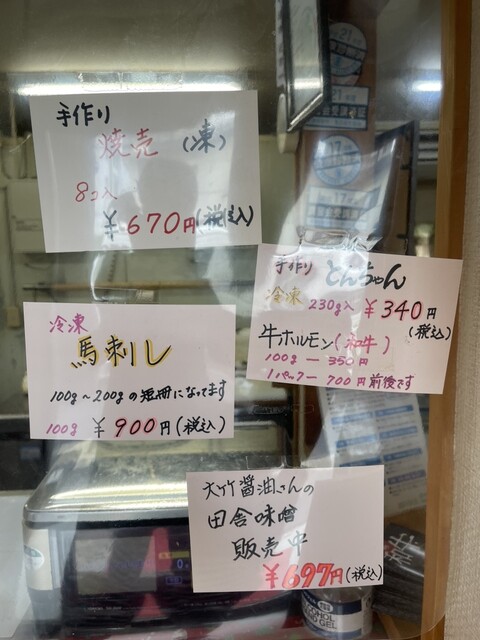 手作り
焼売 (凍)
8コ入
¥670円(税込)
手作り とんちゃん
冷凍 230g入 ¥340円
(税込)
牛ホルモン(和牛)
100g ー 350円
1パックー 700円前後です
冷凍
馬刺し
100g～200gの短冊になってます
100g ¥900円(税込)
大竹醤油さんの
田舎味噌
販売中
¥697円(税込)